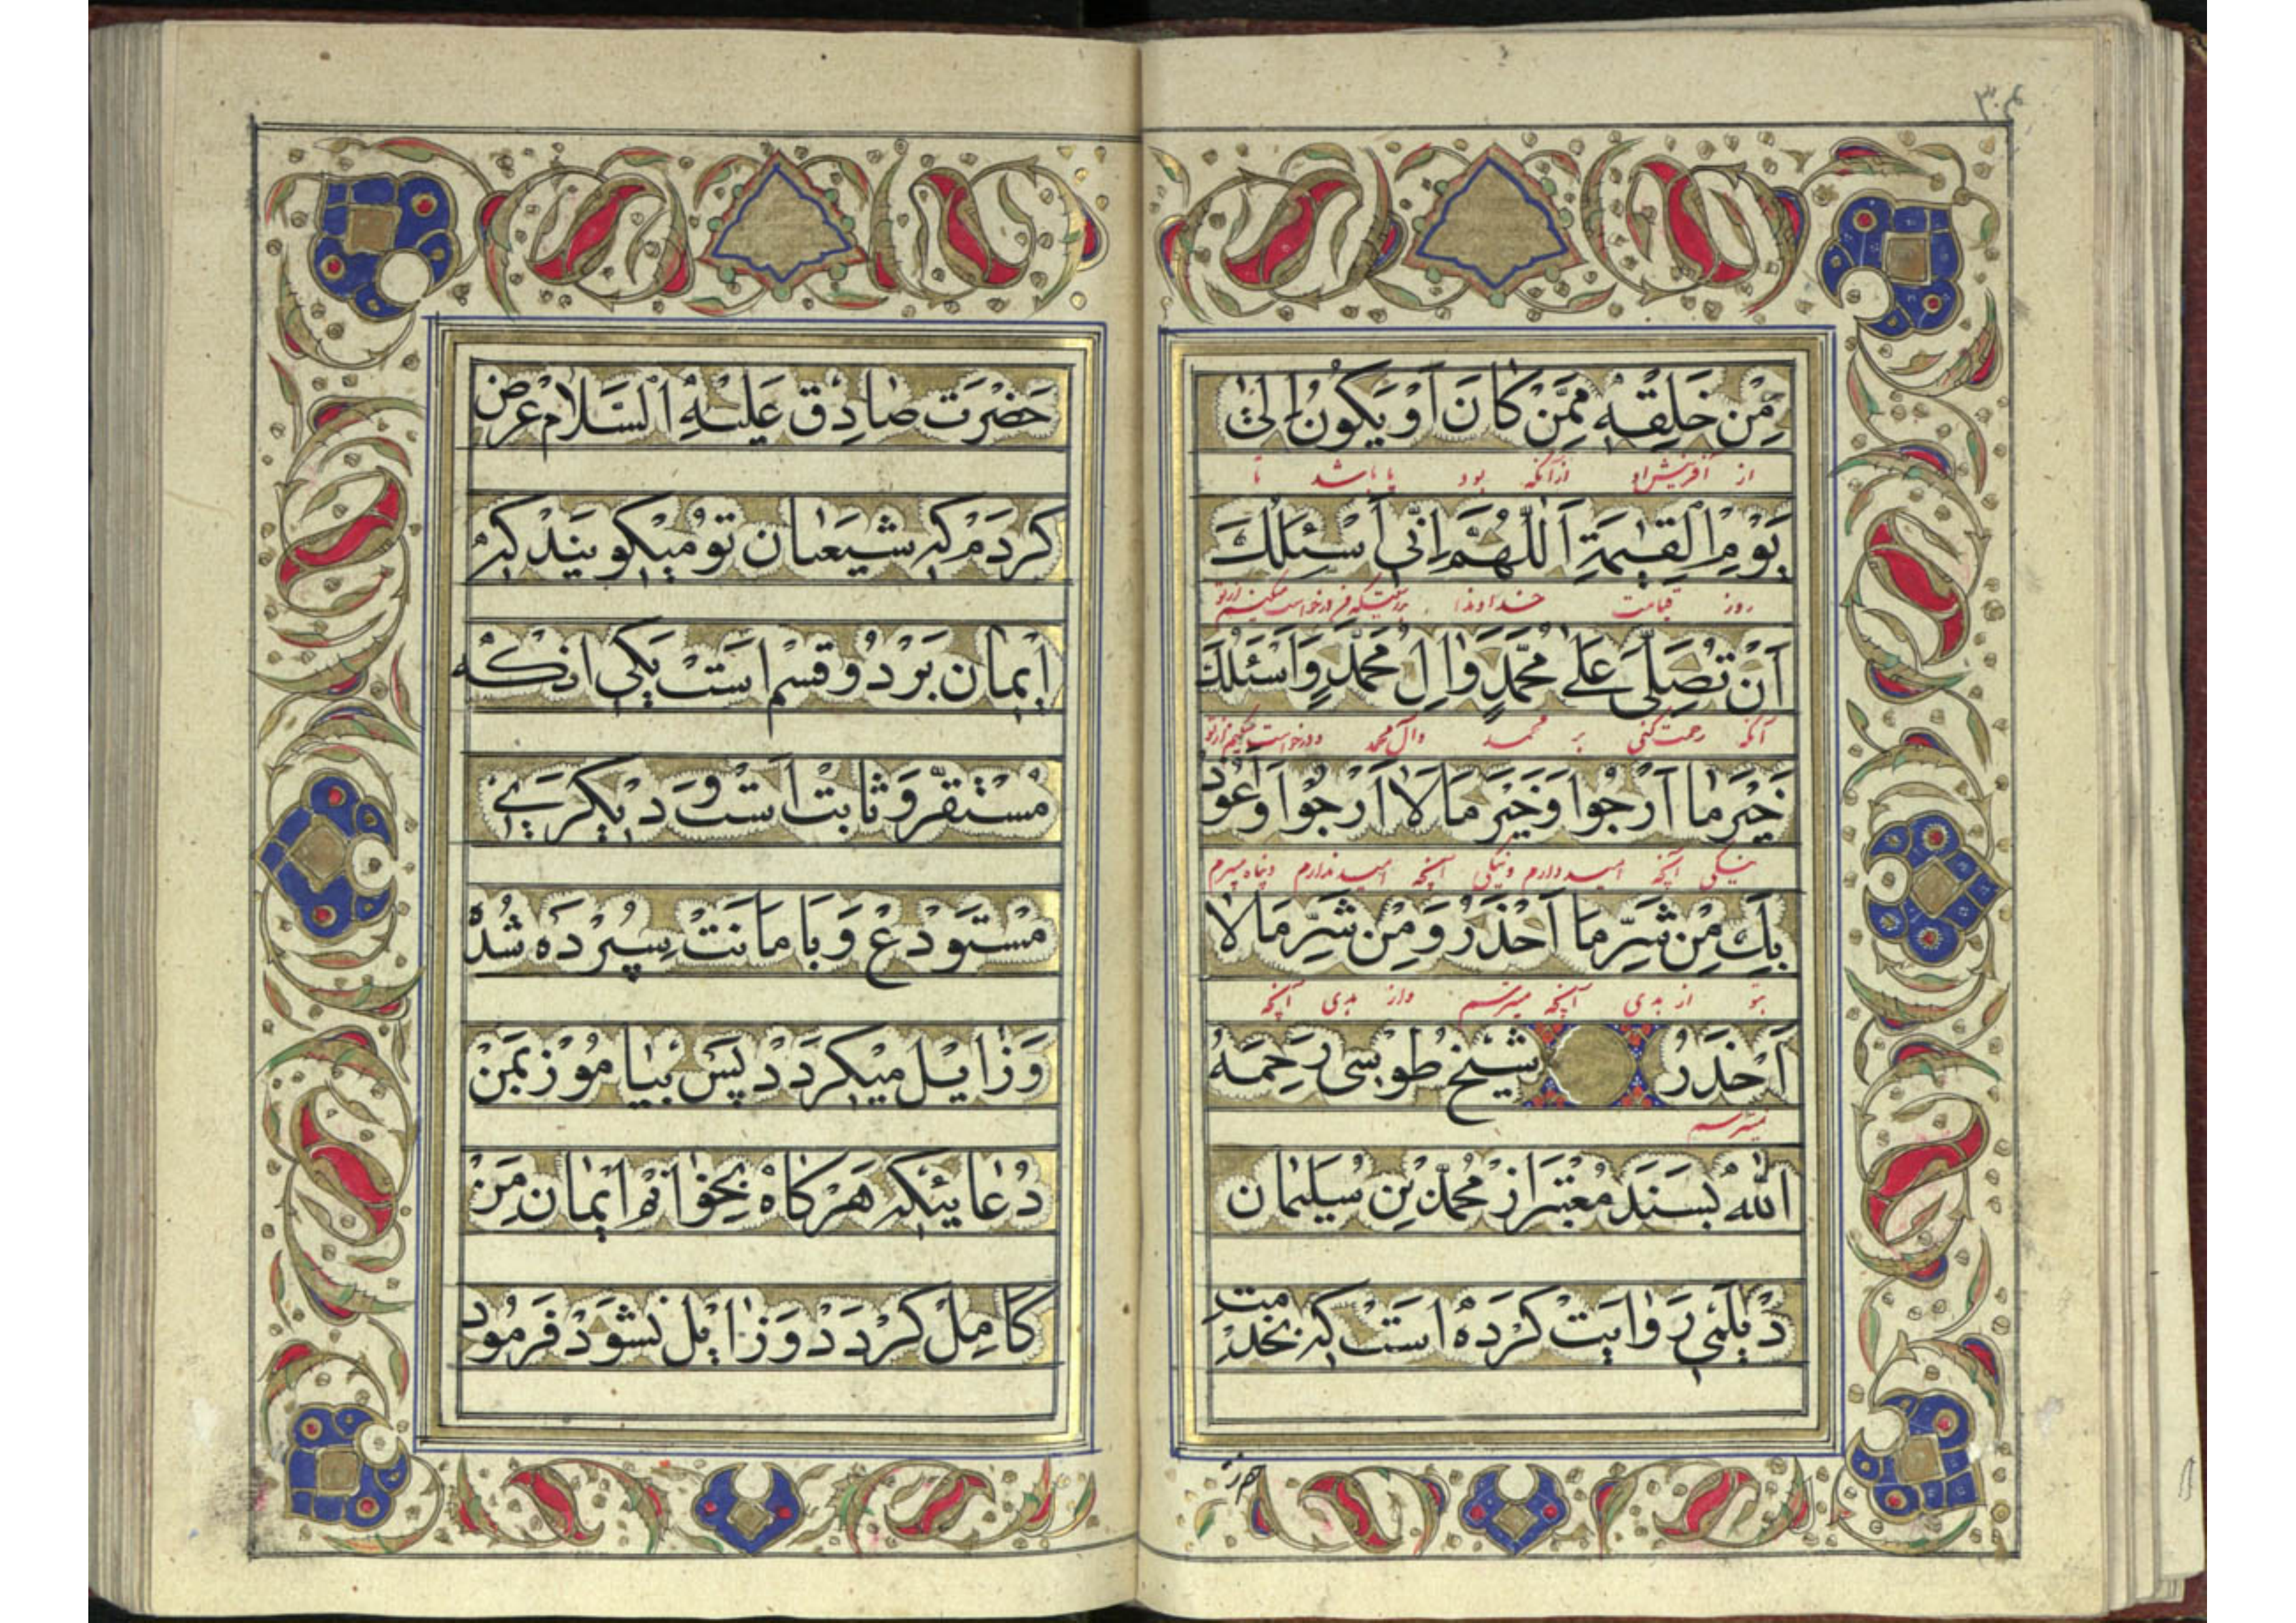 ۳۰۴
مِنْ خَلِقْهٖ مِمَّنْ كَانَ اَوْ يَكُونُ اِلىٰ
از آفرینش او ازآنکه بود یا باشد تا
يَوْمِ الْقِيٰمَةِ اَللّٰهُمَّ اِنّى اَسْئَلُكَ
روز قیامت خداوندا بدرستیکه من درخواست میکنم از تو
اَنْ تُصَلِّىَ عَلىٰ مُحَمَّدٍ وَاٰلِ مُحَمَّدٍ وَاَسْئَلُكَ
آنکه رحمت کنی بر محمد وآل محمد و درخواست میکنم از تو
خَيْرَ مٰا اَرْجُوا وَخَيْرَ مَا لَا اَرْجُوا وَ اَعُوذُ
نیکی آنچه امید دارم و نیکی آنچه امید ندارم و پناه میبرم
بِكَ مِنْ شَرِّ مَا اَحْذَرُ وَ مِنْ شَرِّ مَا لٰا
بتو از بدی آنچه میترسم و از بدی آنچه
اَحْذَرُ شَيْخ طُوسى رَحِمَهُ
نمیترسم
اللّٰهُ بسَنَد مُعْتَبَر از مُحَمَّد بْنِ سُلَيْمٰان
دَيْلَمى رِوٰايَتْ كَرْدَهْ اسَتْ كِه بخدْمَتِ
حضرت
حَضْرَت صٰادِق عَلَيْهِ اَلسَّلٰام عَرْض
كَردَمْ كِه شيعَيٰان تو ميْكويَنْد كِه
ايمٰان بَر دُو قِسْم اسَتْ يَكى انكْه
مُسْتَقَرّ وَ ثابتْ اسَتْ وَ ديْكَرىٖ
مُسْتَوْدَعْ وَ با مانَتْ سِپُرْدَه شُدْه
وَ زٰايل ميْكَردَدْ پَسْ بيٰامُوز بمَنْ
دُعٰائيكِه هَر كاٰهْ بخوٰانَمْ ايْمٰان مَنْ
كَامِلْ كَرْدَدْ وَ زٰايْل نَشَوَدْ فَرمُود